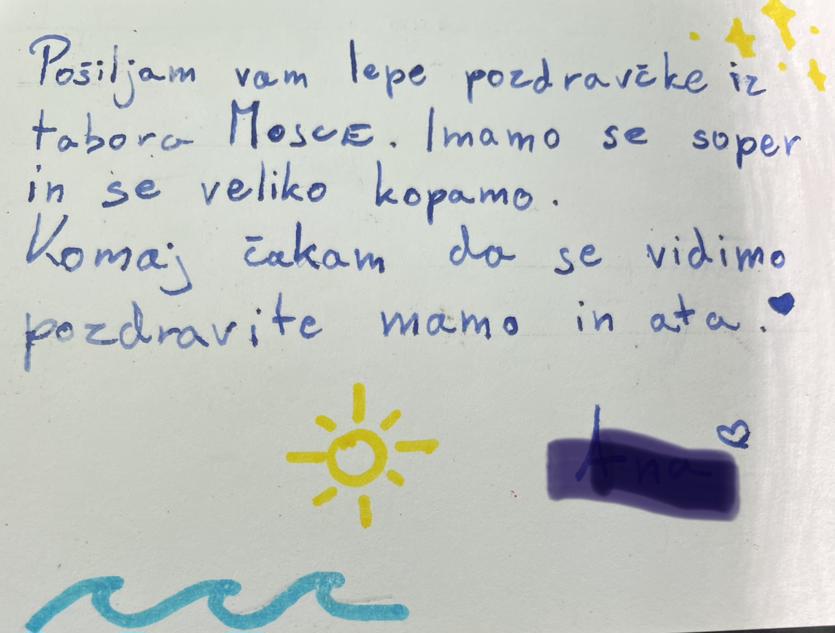 Pošiljam vam lepe pozdravčke iz
tabora MOSCE. Imamo se soper
in se veliko kopamo.
Komaj čakam da se vidimo
pozdravite mamo in ata.
Ana